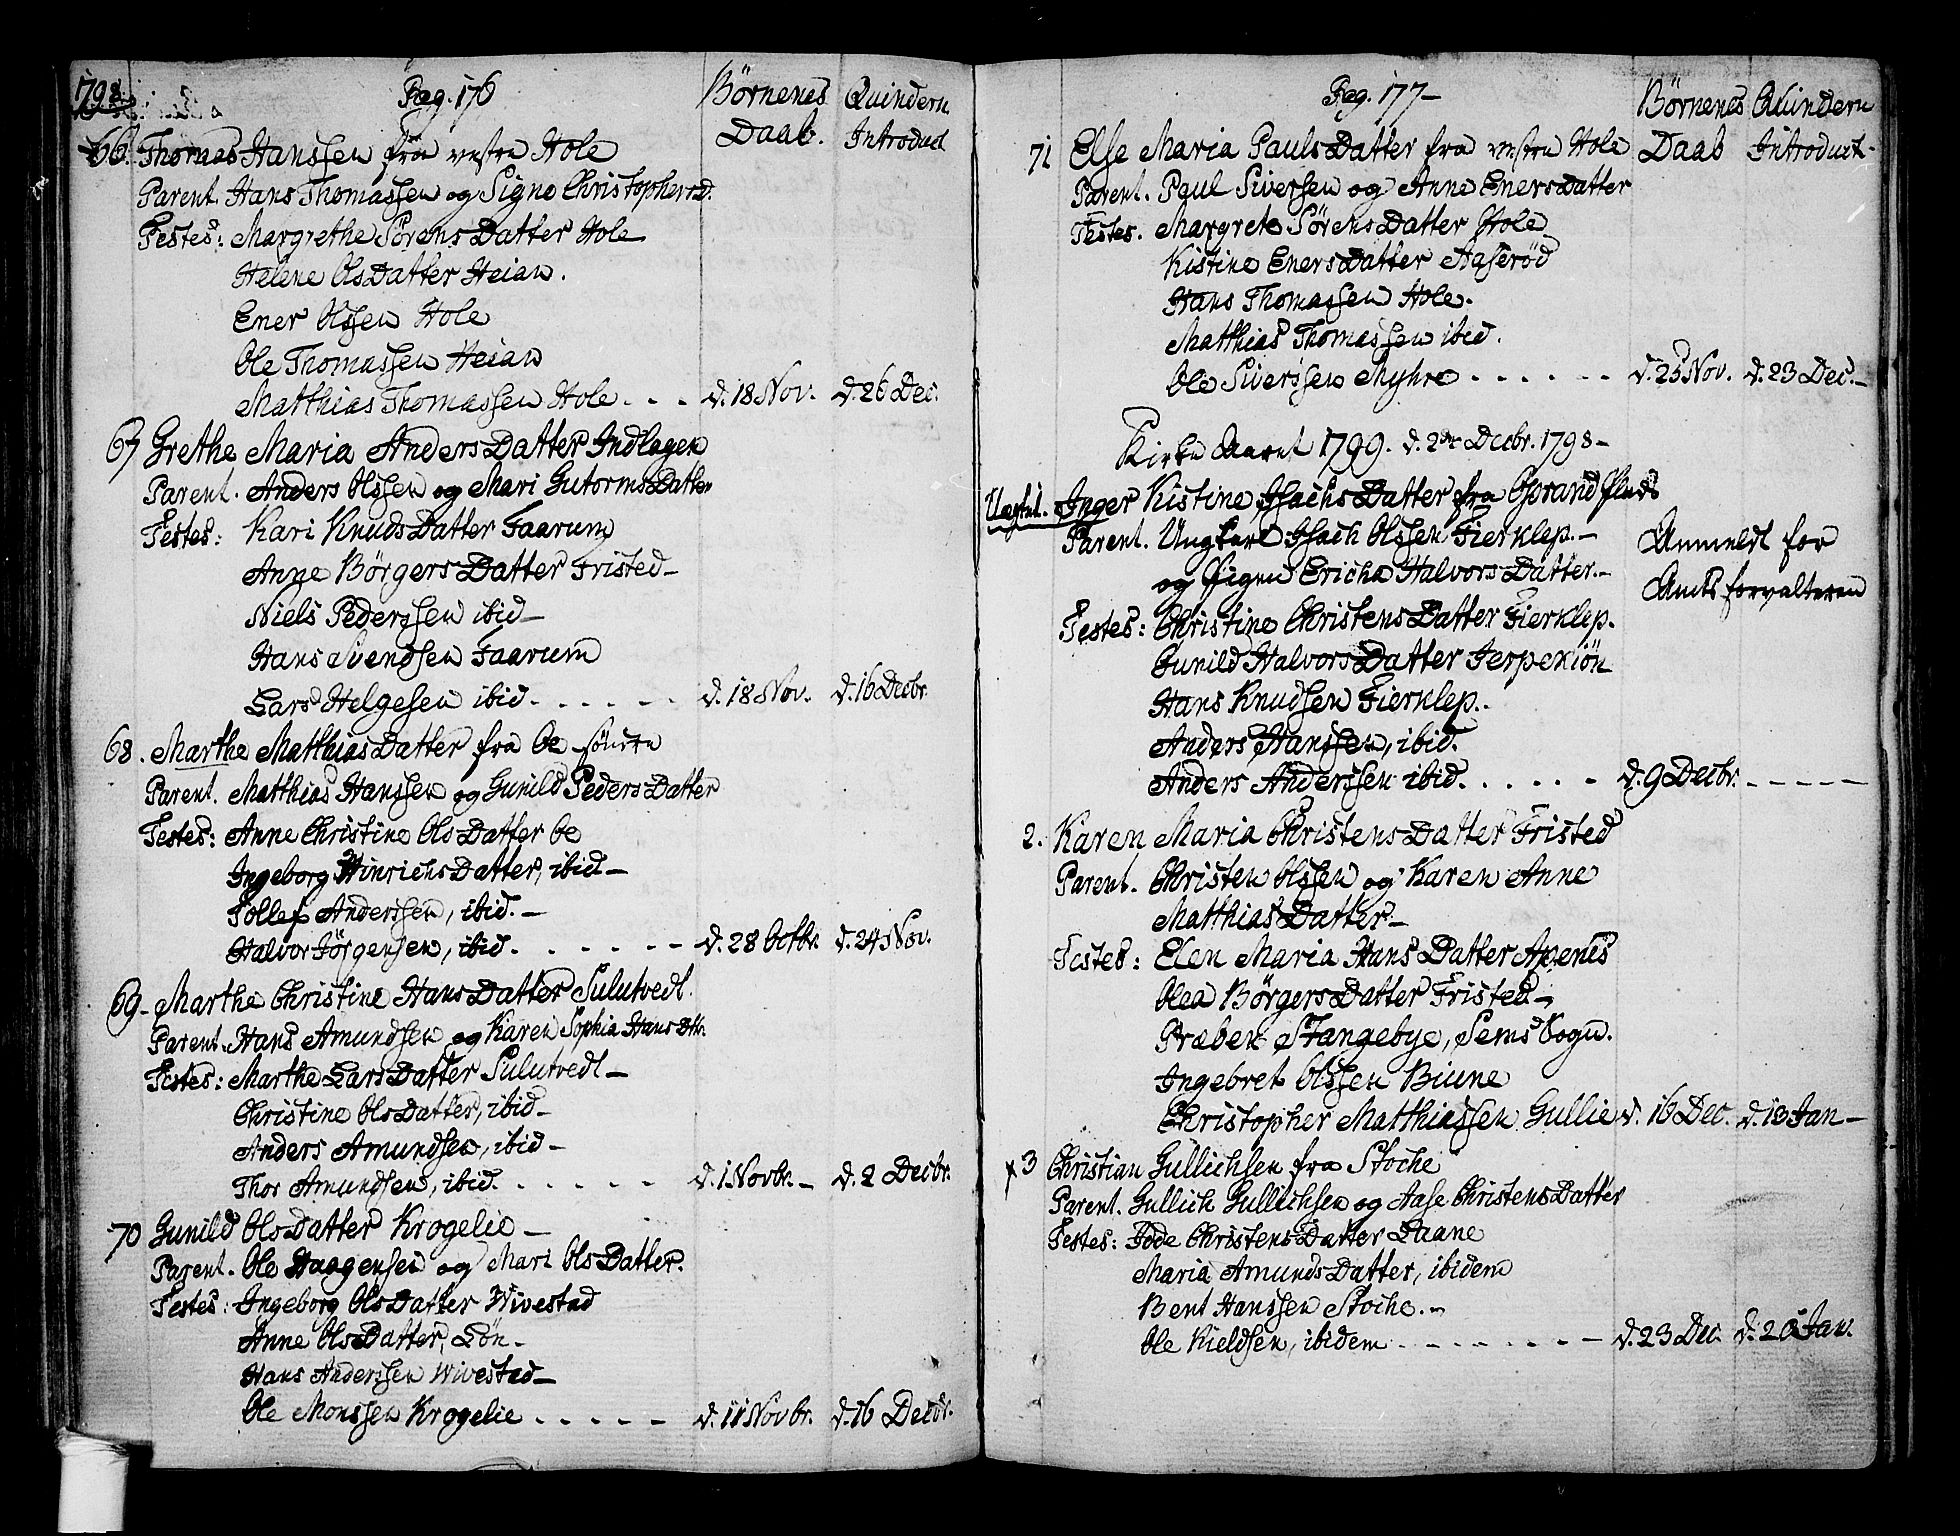 1798. Pag. 176 Börnenes Qvindern
Daab. Introduct
66. Thomas Hanssen fra vestre Hole
Parent. Hans Thomassen og Signe Christophersd.
Testes: Margrethe Sörens Datter Hole
Helene Ols Datter Heian.
Ener Olssen Hole
Ole Thomassen Heian
Matthias Thomassen Hole. . . d. 18 Nov. d. 26 Dec.
67 Grethe Maria Anders Datter Indlagen
Parent. Anders Olssen og Mari Gutorms Datter
Testes: Kari Knuds Datter Faarum
Anne Börgers Datter Fristed
Niels Pederssen ibid
Hans Svendsen Faarum
Lars Helgesen ibid. . . . . . d. 18 Nov. d. 16 Decbr.
68. Marthe Matthias Datter fra Oe söndre
Parent. Matthias Hanssen og Gunild Peders Datter
Testes: Anne Christine Ols Datter Oe
Ingeborg Hinrichs Datter, ibid
Tollef Anderssen, ibid.
Halvor Jörgensen, ibid. . . . . d. 28 Octbr. d. 24 Nov.
69 Marthe Christine Hans Datter Sulutvedt.
Parent. Hans Amundsen og Karen Sophia Hans Dtr.
Testes: Marthe Lars Datter Sulutvedt
Christine Ols Datter, ibid
Anders Amundsen, ibid
Thor Amundsen, ibid. . . . . d. 1 Novbr. d. 2 Decbr.
70 Gunild Ols Datter Krogelie
Parent. Ole Haagensen og Mari Ols Datter.
Testes: Ingeborg Ols Datter Wivestad
Anne Ols Datter, Lön
Hans Anderssen Wivestad
Ole Monssen Krogelie . . . . . d. 11 Novbr. d. 16 Decbr.
Pag. 177 Börnenes Qvindern
71 Else Maria Pauls Datter fra vestre Hole Daab Introduct.
Parent. Paul Siverssen og Anne Eners Datter
Testes. Margrete Sörens Datter Hole
Kistine Eners Datter Aaseröd
Hans Thomassen Hole.
Matthias Thomassen ibid.
Ole Siverssen Myhre . . . . . . d. 25 Nov. d. 23 Dec.
Kirke Aaret 1799. d. 2de Decbr. 1798
Uegte. 1. Inger Kistine Isachs Datter fra
Parent. Ungkarl Isach Olssen Fierklep.
og Pigen Ericha Halvors Datter. Anmeldt for
Amtsforvalteren
Testes: Christine Christens Datter Fierklep.
Gunild Halvors Datter Jerpekiön
Hans Knudsen Fierklep.
Anders Hanssen, ibid.
Anders Anderssen ibid. . . . . . d. 9 Decbr. - - - - -
2. Karen Maria Christens Datter Fristed
Parent. Christen Olssen og Karen Anne
Matthias Datter.
Testes: Elen Maria Hans Datter Apenes
Olea Börgers Datter Fristed
Præben Stangebye, Sems Sogn.
Ingebret Olssen Biune
Christopher Matthiassen Gullie d. 16 Dec. d. 13 Jan
3 Christian Gullichsen fra Stoche
Parent. Gullich Gullichsen og Aase Christens Datter
Testes: Tode Christens Datter Laane
Maria Amunds Datter, ibidem
Bent Hanssen Stoche.
Ole Kieldsen, ibidem . . . . . . d. 23 Dec. d. 20 Jan.